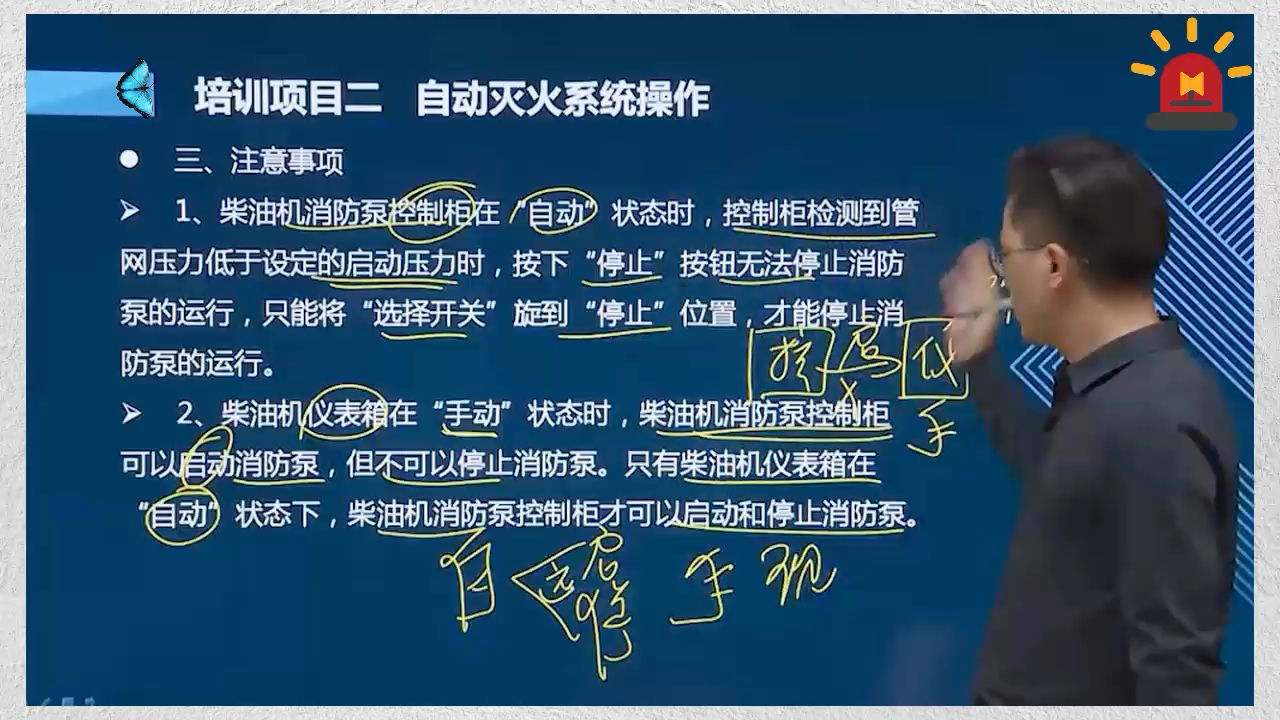 培训项目二 自动灭火系统操作
三、注意事项
1、柴油机消防泵控制柜在“自动”状态时，控制柜检测到管
网压力低于设定的启动压力时，按下“停止”按钮无法停止消防
泵的运行，只能将“选择开关”旋到“停止”位置，才能停止消
防泵的运行。
控 启 仪
2、柴油机仪表箱在“手动”状态时，柴油机消防泵控制柜
手
可以启动消防泵，但不可以停止消防泵。只有柴油机仪表箱在
“自动”状态下，柴油机消防泵控制柜才可以启动和停止消防泵。
自 远 启 手 现
停